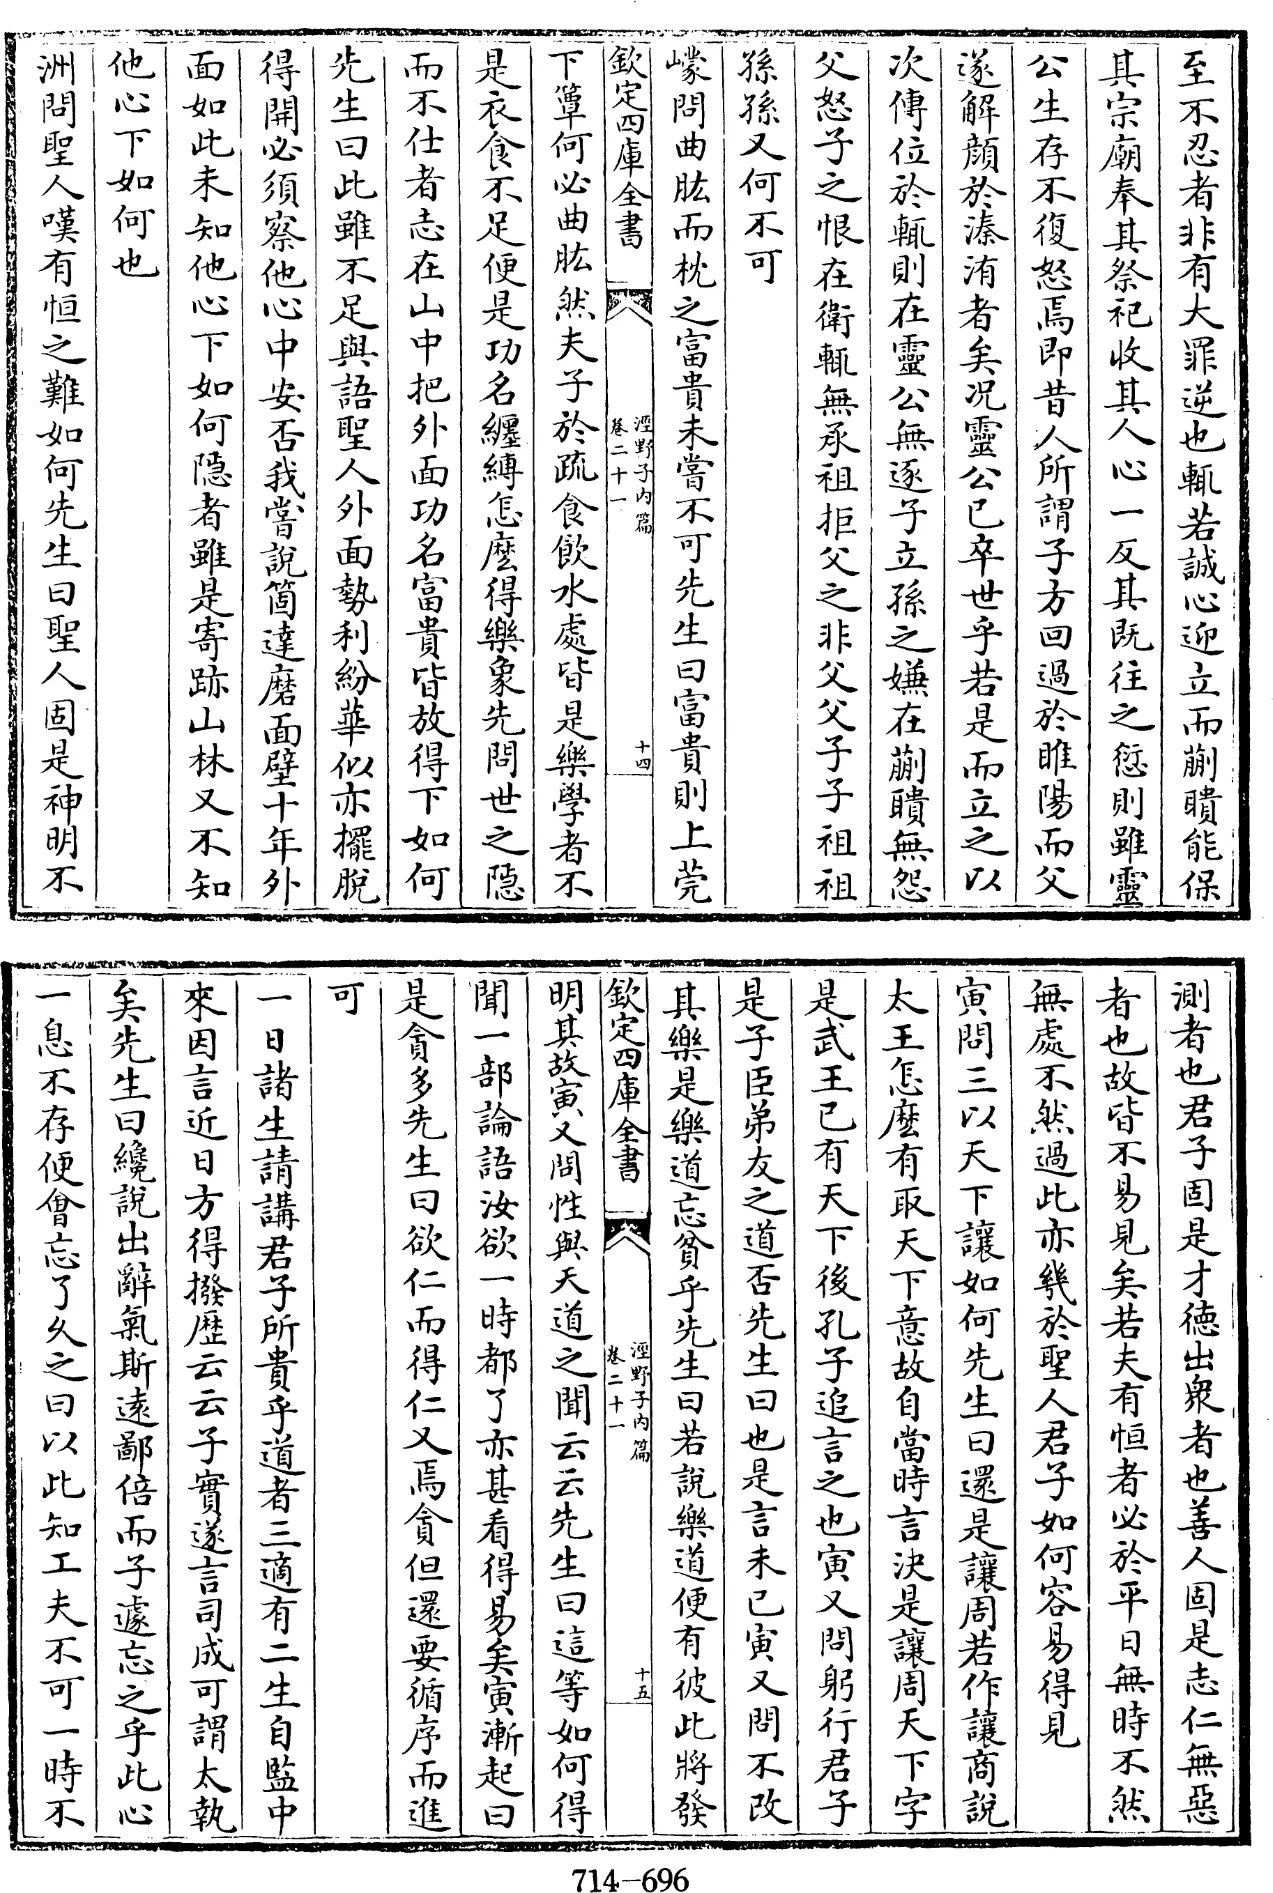 至不忍者非有大罪逆也輒若誠心迎立而蒯聵能保
其宗廟奉其祭祀收其人心一反其既往之愆則雖靈
公生存不復怒焉即昔人所謂子方回過於睢陽而父
遂解顔於溱洧者矣况靈公已卒世乎若是而立之以
次傳位於輒則在靈公無逐子立孫之嫌在蒯聵無怨
父怒子之恨在衛輒無承祖拒父之非父父子子祖祖
孫孫又何不可
㠓問曲肱而枕之富貴未嘗不可先生曰富貴則上莞
欽定四庫全書
涇野子内篇
卷二十一
十四
下簟何必曲肱然夫子於疏食飲水處皆是樂學者不
是衣食不足便是功名纒縛怎麽得樂象先問世之隠
而不仕者志在山中把外面功名富貴皆放得下如何
先生曰此雖不足與語聖人外面勢利紛華似亦擺脫
得開必須察他心中安否我嘗說箇達磨面壁十年外
面如此未知他心下如何隠者雖是寄跡山林又不知
他心下如何也
洲問聖人嘆有恒之難如何先生曰聖人固是神明不
測者也君子固是才徳出衆者也善人固是志仁無惡
者也故皆不易見矣若夫有恒者必於平日無時不然
無處不然過此亦幾於聖人君子如何容易得見
寅問三以天下讓如何先生曰還是讓周若作讓商說
太王怎麽有取天下意故自當時言決是讓周天下字
是武王已有天下後孔子追言之也寅又問躬行君子
是子臣弟友之道否先生曰也是言未已寅又問不改
其樂是樂道忘貧乎先生曰若說樂道便有彼此將發
欽定四庫全書
涇野子内篇
卷二十一
十五
明其故寅又問性與天道之聞云云先生曰這等如何得
聞一部論語汝欲一時都了亦甚看得易矣寅漸起曰
是貪多先生曰欲仁而得仁又焉貪但還要循序而進
可
一日諸生請講君子所貴乎道者三適有二生自監中
來因言近日方得撥歴云云子實遂言司成可謂太執
矣先生曰纔說出辭氣斯逺鄙倍而子遽忘之乎此心
一息不存便㑹忘了久之曰以此知工夫不可一時不
714-696